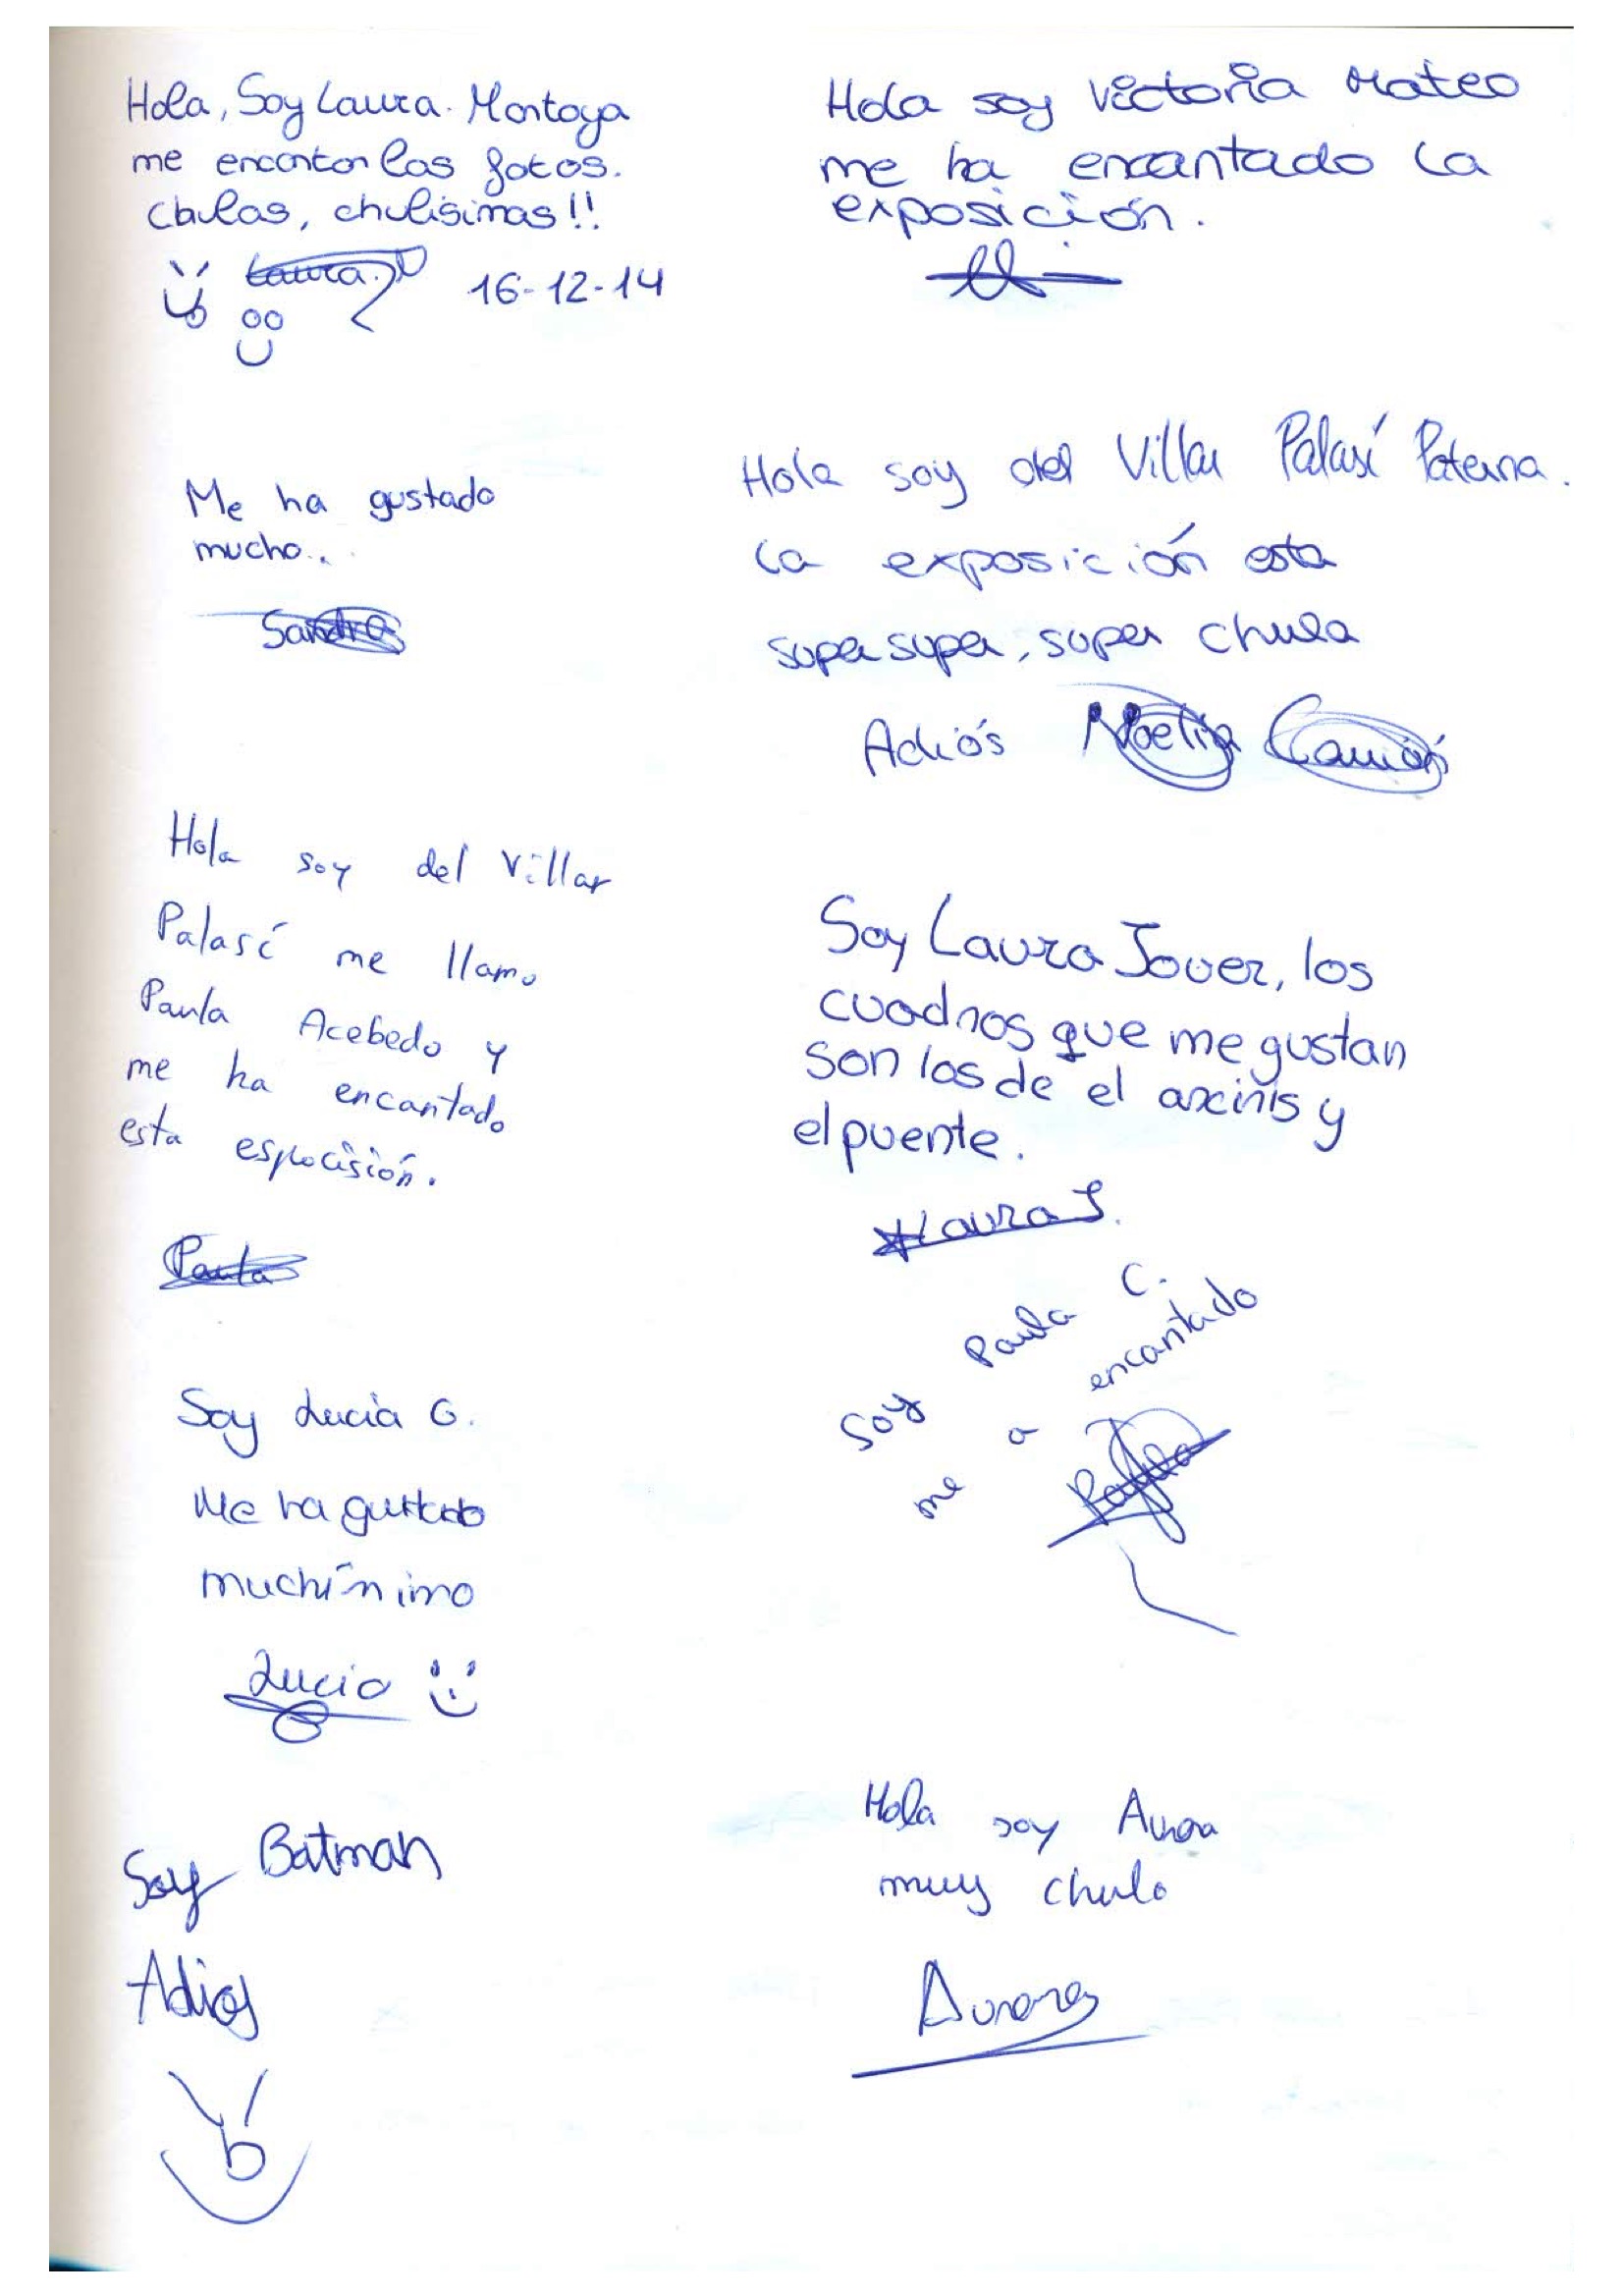 Hola, Soy Laura. Montoya
me encantan las fotos.
Chulas, chulísimas!!
Laura
16-12-14
Hola soy Victoria Mateo
me ha encantado la
exposición.
Me ha gustado
mucho..
Sandra
Hola soy del Villar Palasí Paterna.
la exposición esta
super super, super chula
Adiós Noelia
Hola soy del Villar
Palasí me llamo
Paula Acebedo y
me ha encantado
esta espocisión.
Paula
Soy Laura Jover, los
cuadros que me gustan
son los de el
y
el puente.
Laura J.
Soy Paula C.
me a encantado
Paula
Soy Lucia G.
Me ha gustado
muchísimo
Lucia
Hola soy Aurora
muy chulo
Aurora
Soy Batman
Adios